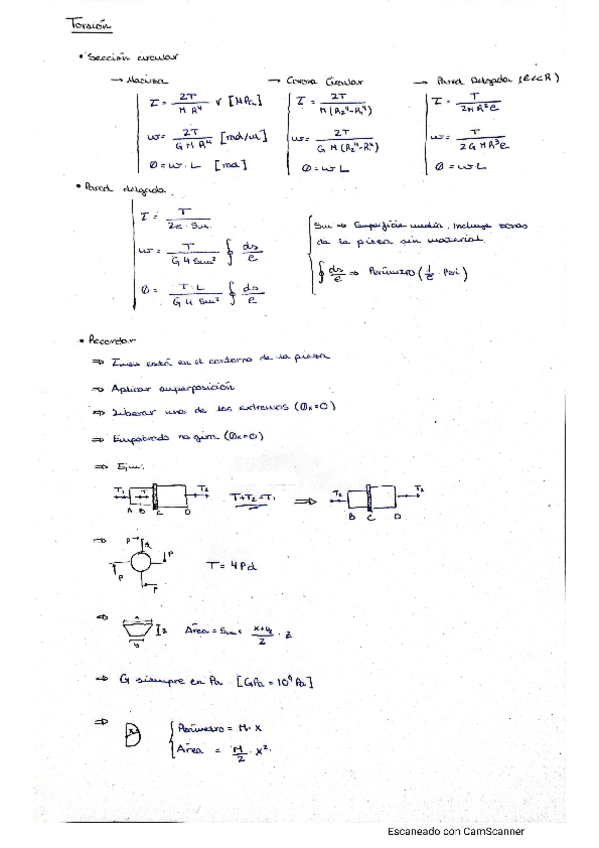 Torsión
• Sección circular
→ Maciza
→ Corona Circular
→ Pared Delgada (e<<R)
τ = 2T / π R⁴ · r [MPa]
τ = 2T / π (R₂⁴-R₁⁴)
τ = T / 2π R²e
ω = 2T / G π R⁴ [rad/m]
ω = 2T / G π (R₂⁴-R₁⁴)
ω = T / 2 G π R³e
Ø = ω · L [rad]
Ø = ω L
Ø = ω L
• Pared delgada
τ = T / 2e · Sm
ω = T / G 4 Sm² ∮ ds/e
Ø = T · L / G 4 Sm² ∮ ds/e
Sm → Superficie media. Incluye zonas
de la pieza sin material.
∮ ds/e ⇒ Perímetro (1/e · Peri)
• Recordar
⇒ τmax está en el contorno de la pieza
⇒ Aplicar superposición
⇒ Liberar uno de los extremos (Øx=0)
⇒ Empotrado no gira (Øx=0)
⇒ Ejm:
T₁ T T₂
A B C D
T+T₂=T₁ ⇒
T₂ T₂
B C D
⇒ P d P P P
T = 4Pd
⇒ x z y
Área = Sm = x+y / 2 · z
⇒ G siempre en Pa [GPa = 10⁹ Pa]
⇒ x
Perímetro = π · x
Área = π/2 · x²
Escaneado con CamScanner